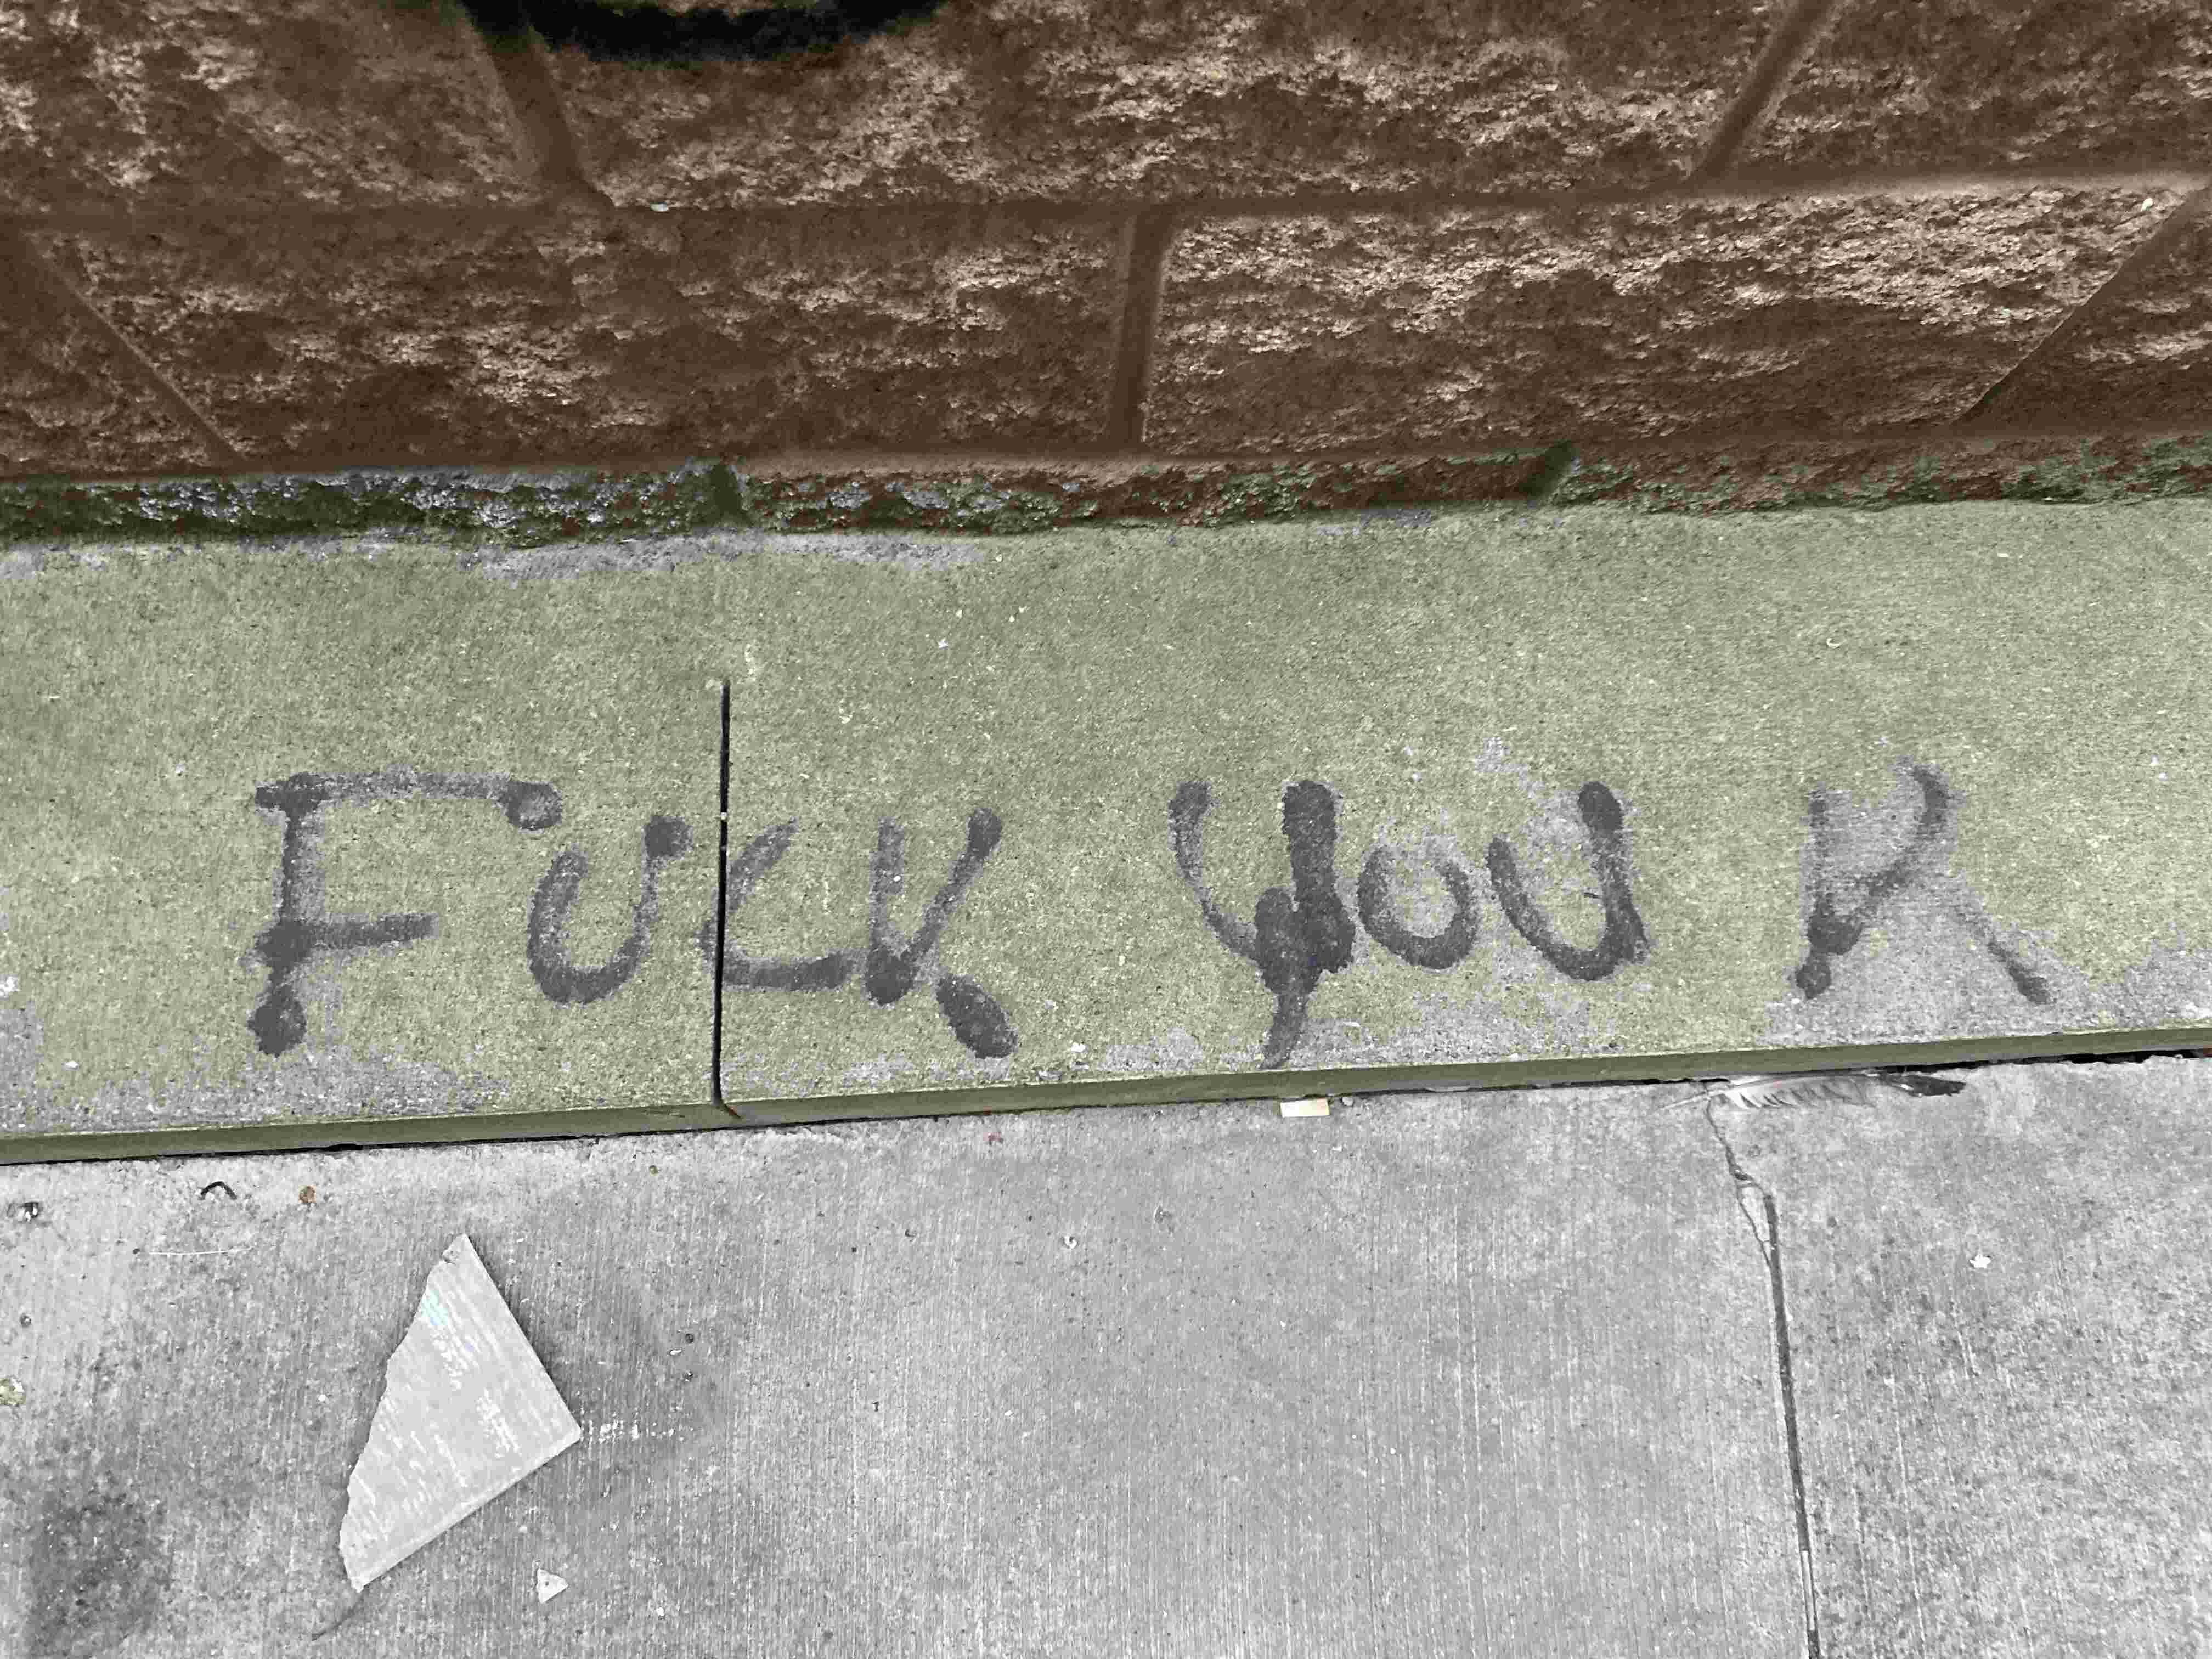 Fuck You K